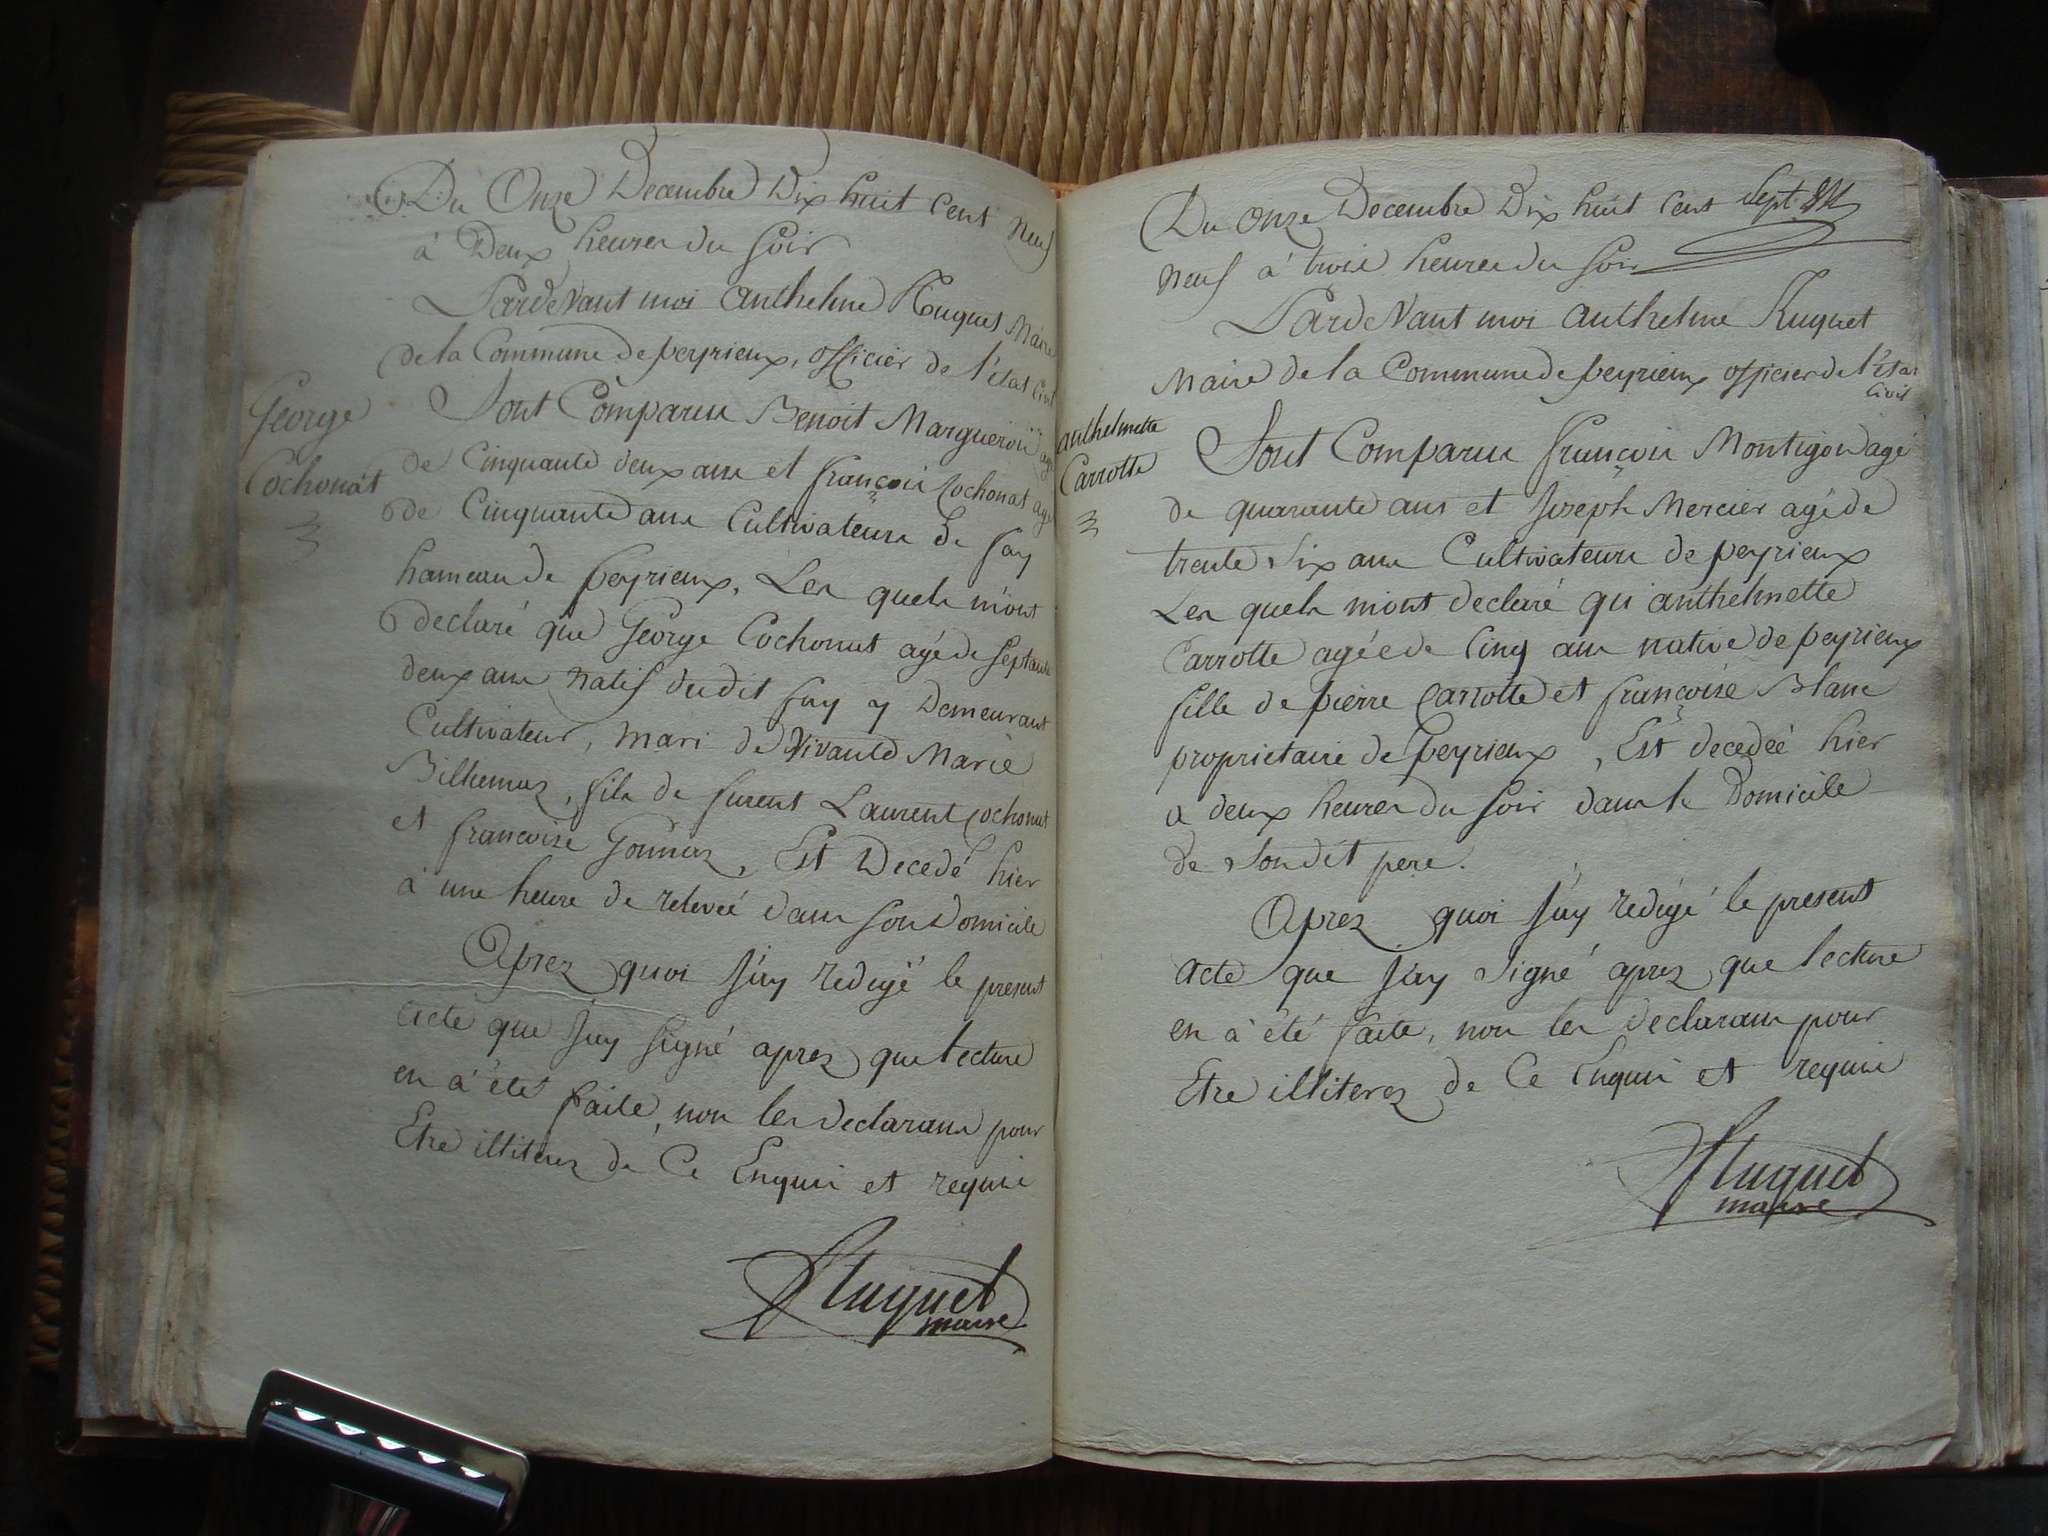 Du Onze Decembre Dix huit Cent Neuf
à Deux heures du Soir
Pardevant moi Anthelme Huguet Maire
de la Commune de peyrieux, officier de l'état Civil
George
Cochonat
Sont Comparus Benoit Margueron agé
de Cinquante deux ans et françois Cochonat agé
de Cinquante ans Cultivateurs de fay
hameau de peyrieux, Les quels m'ont
declaré que George Cochonat agé de septante
deux ans natif dudit fay y Demeurant
Cultivateur, mari de Vivante Marie
Bilhemaz, fils de furent Laurent Cochonat
et francoise Gonnaz, Est Decedé hier
à une heure de relevée dans son Domicile
Aprez quoi J'ay redigé le present
acte que J'ay signé aprez que lecture
en à été faite, non les declarans pour
Etre illiterez de Ce Enquis et requis
Huguet
maire
Du Onze Decembre Dix huit Cent Sept
neuf à trois heures du soir
Pardevant moi Anthelme Huguet
Maire de la Commune de peyrieux officier de l'Etat
Civil
Anthelmette
Carrotte
Sont Comparus françois Montigon agé
de quarante ans et Joseph Mercier agé de
trente six ans Cultivateurs de peyrieux
Les quels m'ont declaré qu'anthelmette
Carrotte agée de Cinq ans native de peyrieux
fille de pierre Carrotte et françoise Blanc
proprietaire de peyrieux, Est decedée hier
a deux heures du soir dans le Domicile
de son dit pere.
Aprez quoi J'ay redigé le present
acte que J'ay signé aprez que lecture
en à été faite, non les declarans pour
Etre illiterez de Ce Enquis et requis
Huguet
maire